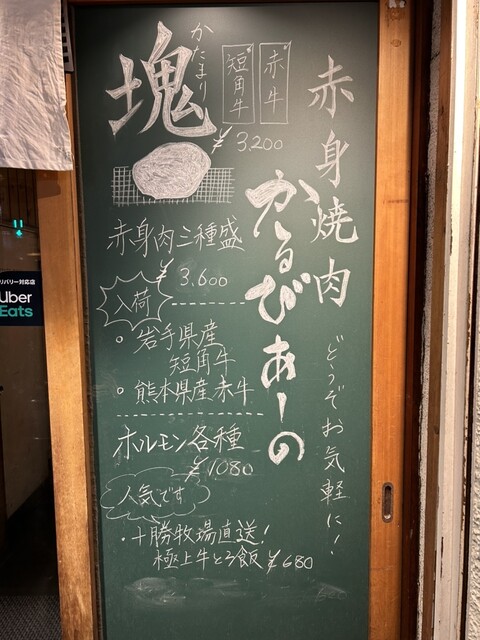 赤身焼肉
かるびあーの
どうぞお気軽に!
かたまり
塊
赤牛
短角牛
¥3,200
赤身肉三種盛
¥3,600
入荷
○岩手県産
短角牛
○熊本県産赤牛
ホルモン各種
¥1080
人気です
・十勝牧場直送!
極上牛とろ飯 ¥680
バリバリー対応店
Uber
Eats